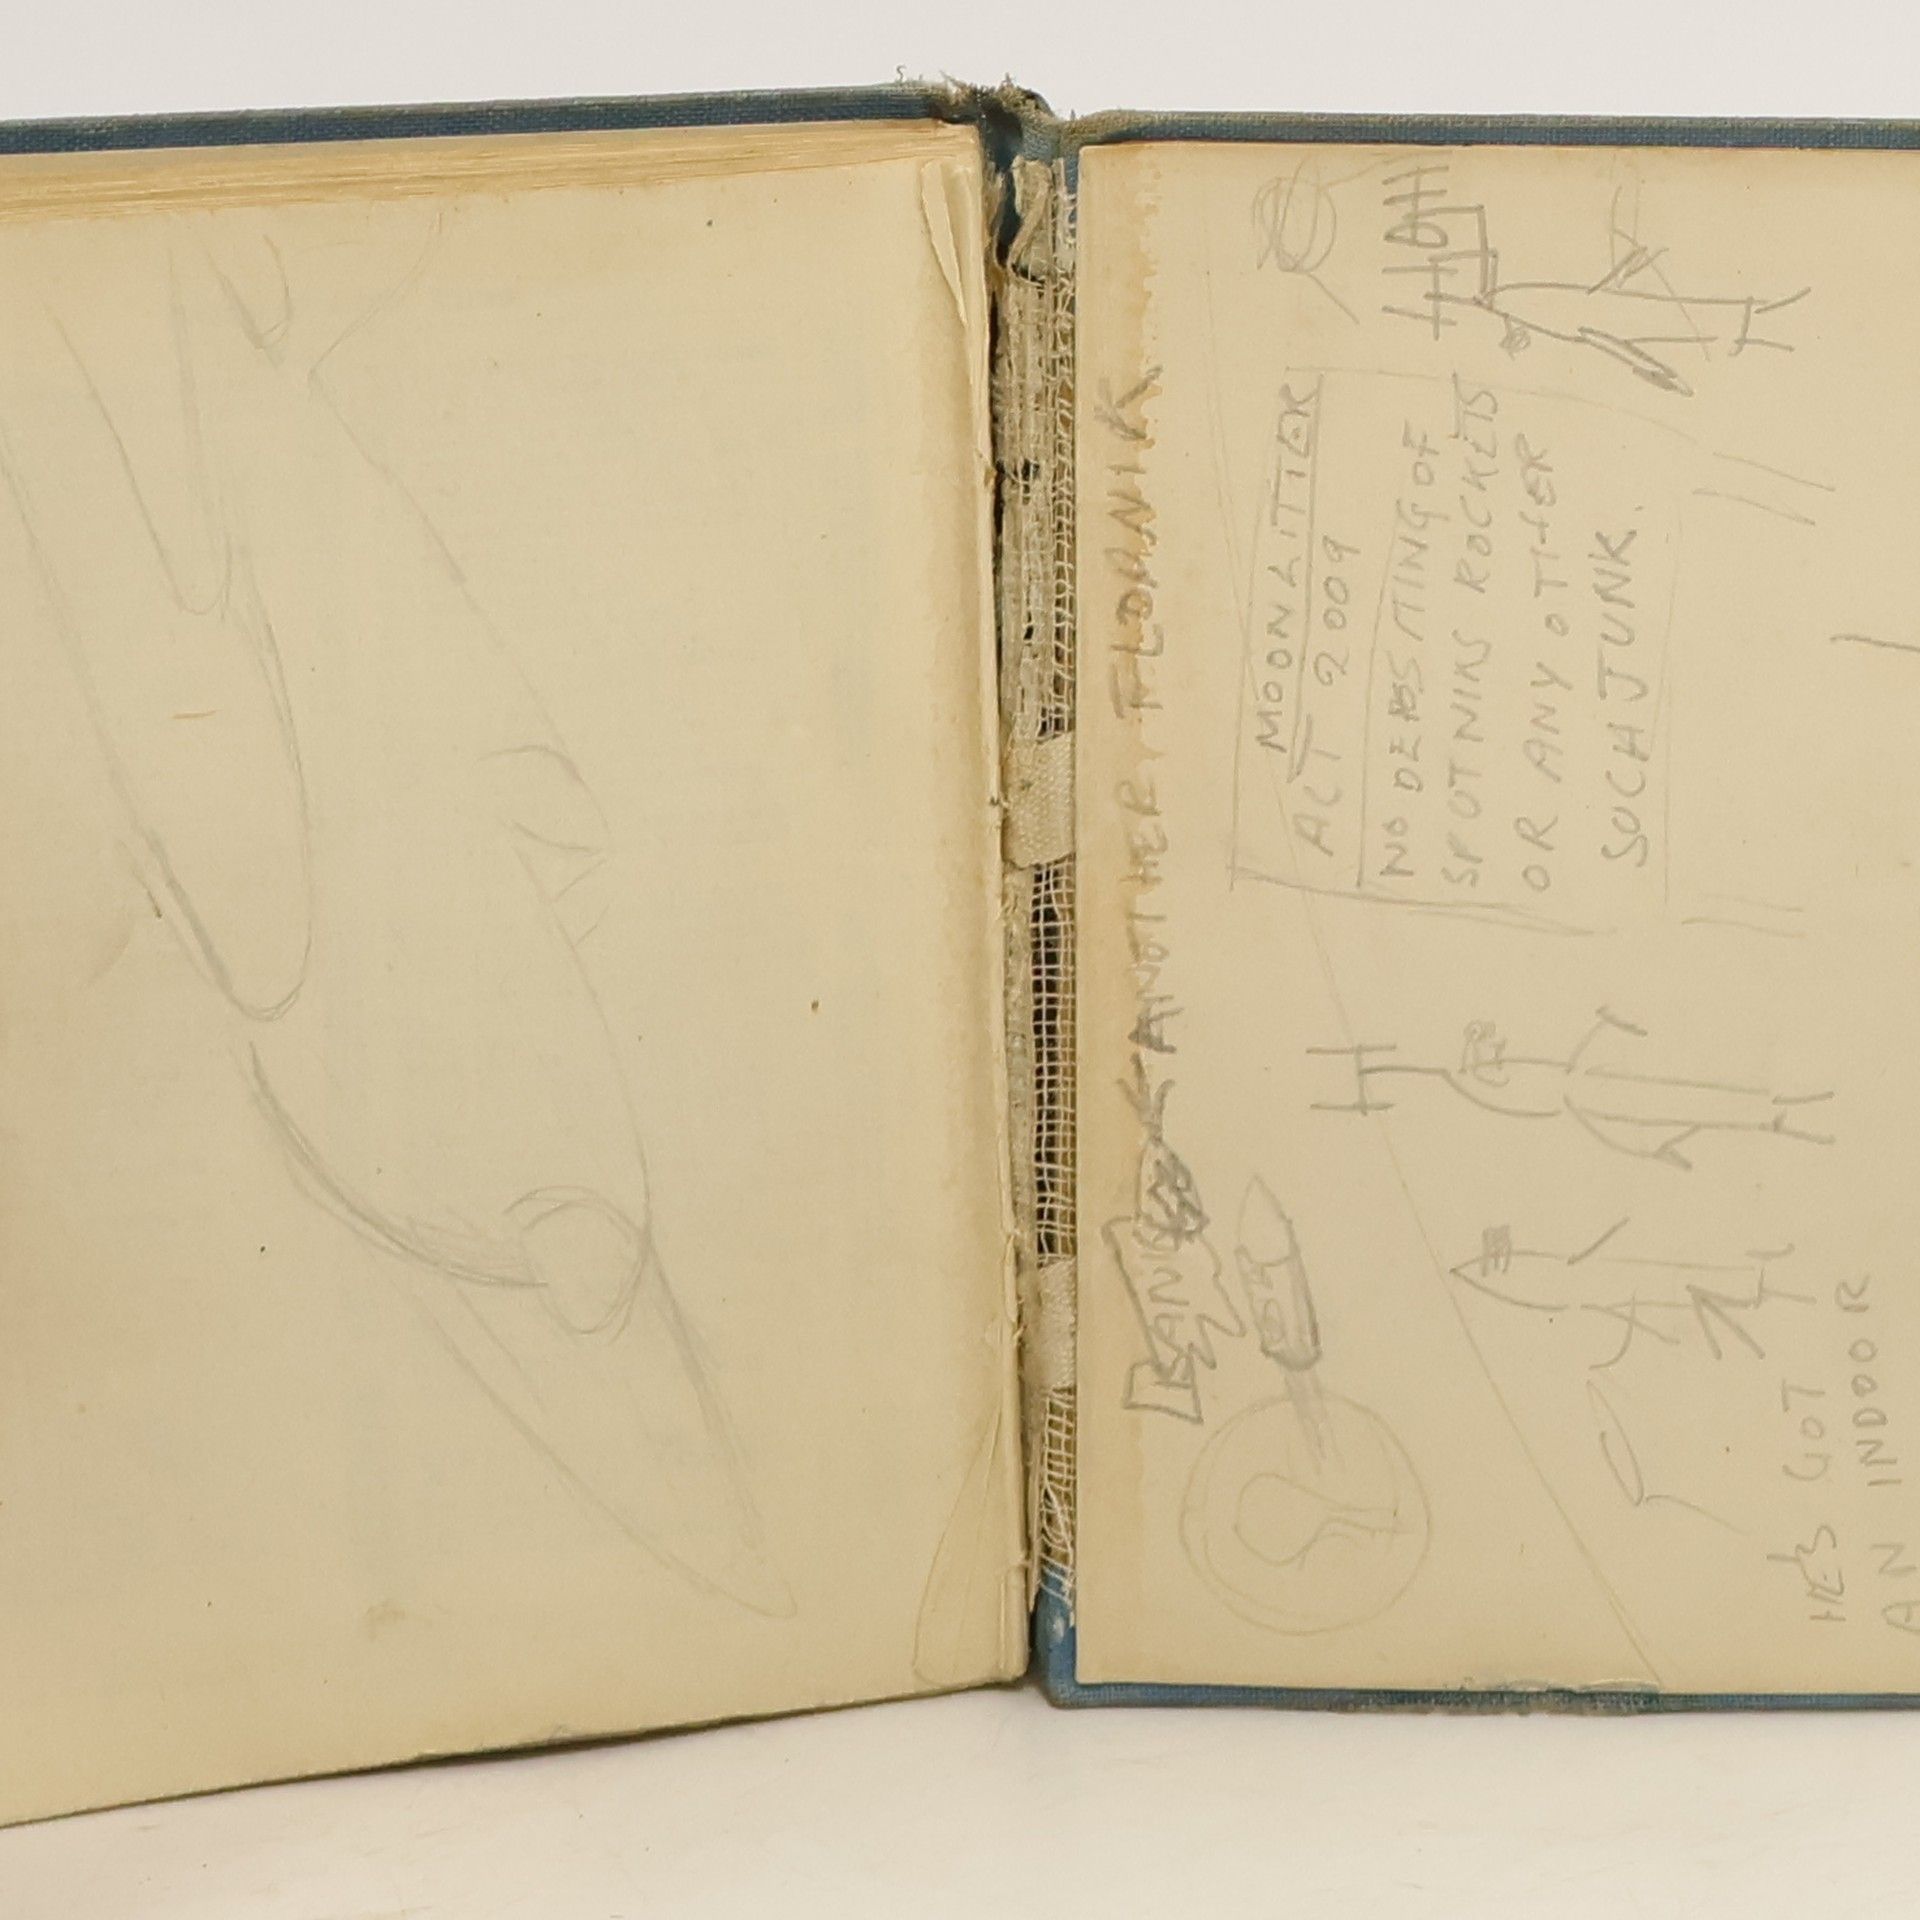 ANOTHER FLOPNIK.
MOON LITTER
ACT 2009
NO DEPSITING OF
SPUTNIKS ROCKETS
OR ANY OTHER
SUCH JUNK.
HES GOT
AN INDOOR